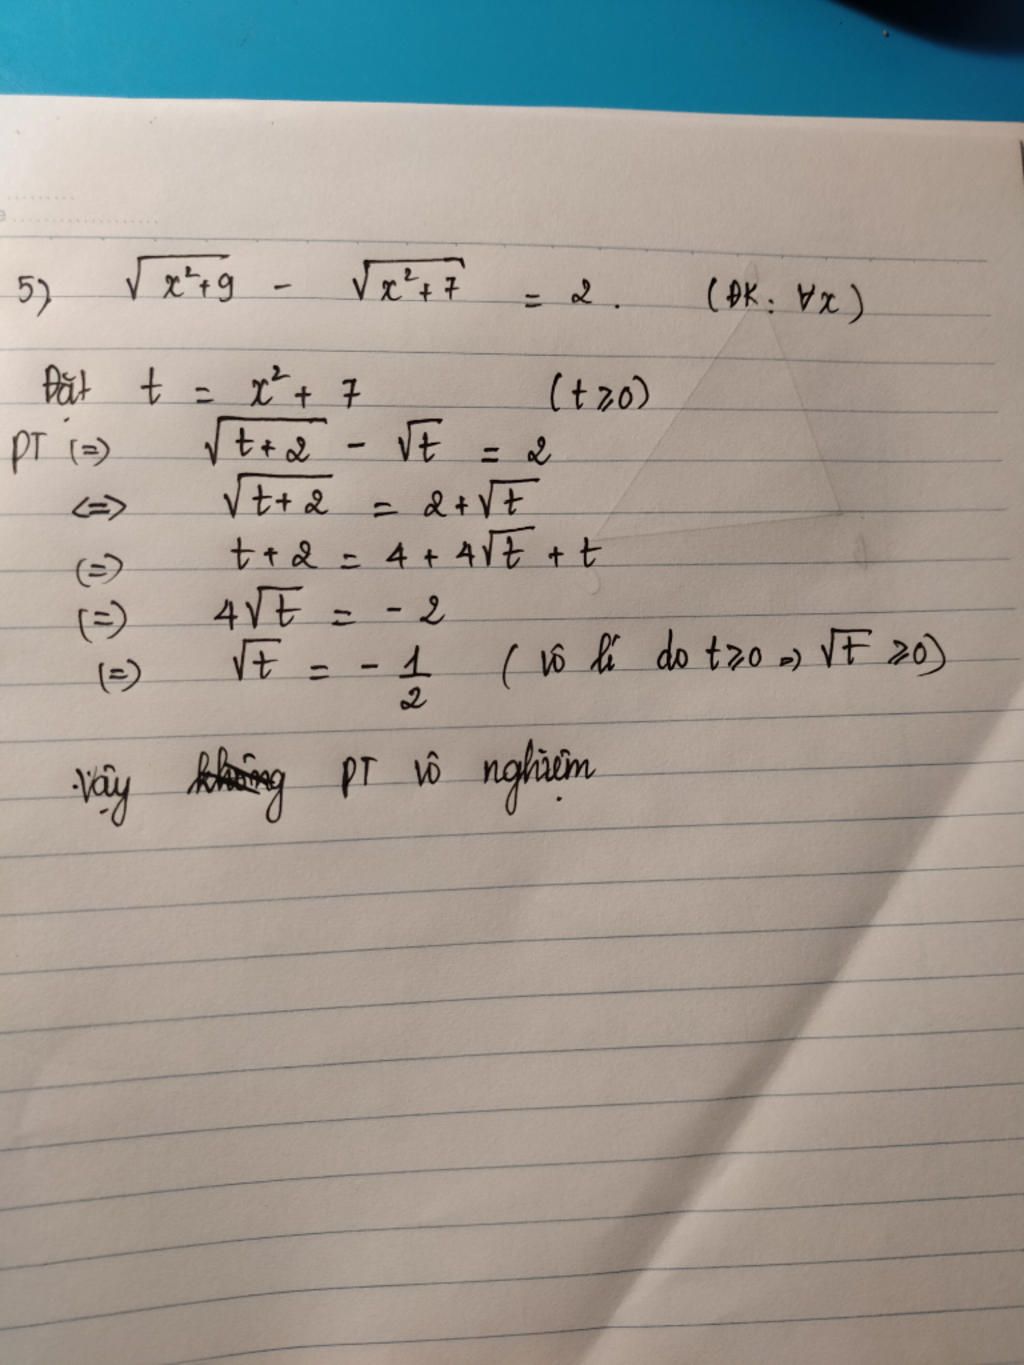 5) √(x²+9) - √(x²+7) = 2. (ĐK: ∀x)
Đặt t = x² + 7 (t ≥ 0)
PT (=) √(t+2) - √t = 2
<=> √(t+2) = 2+√t
(=) t + 2 = 4 + 4√t + t
(=) 4√t = - 2
(=) √t = - 1/2 (vô lí do t≥0 => √t ≥0)
Vậy không PT vô nghiệm